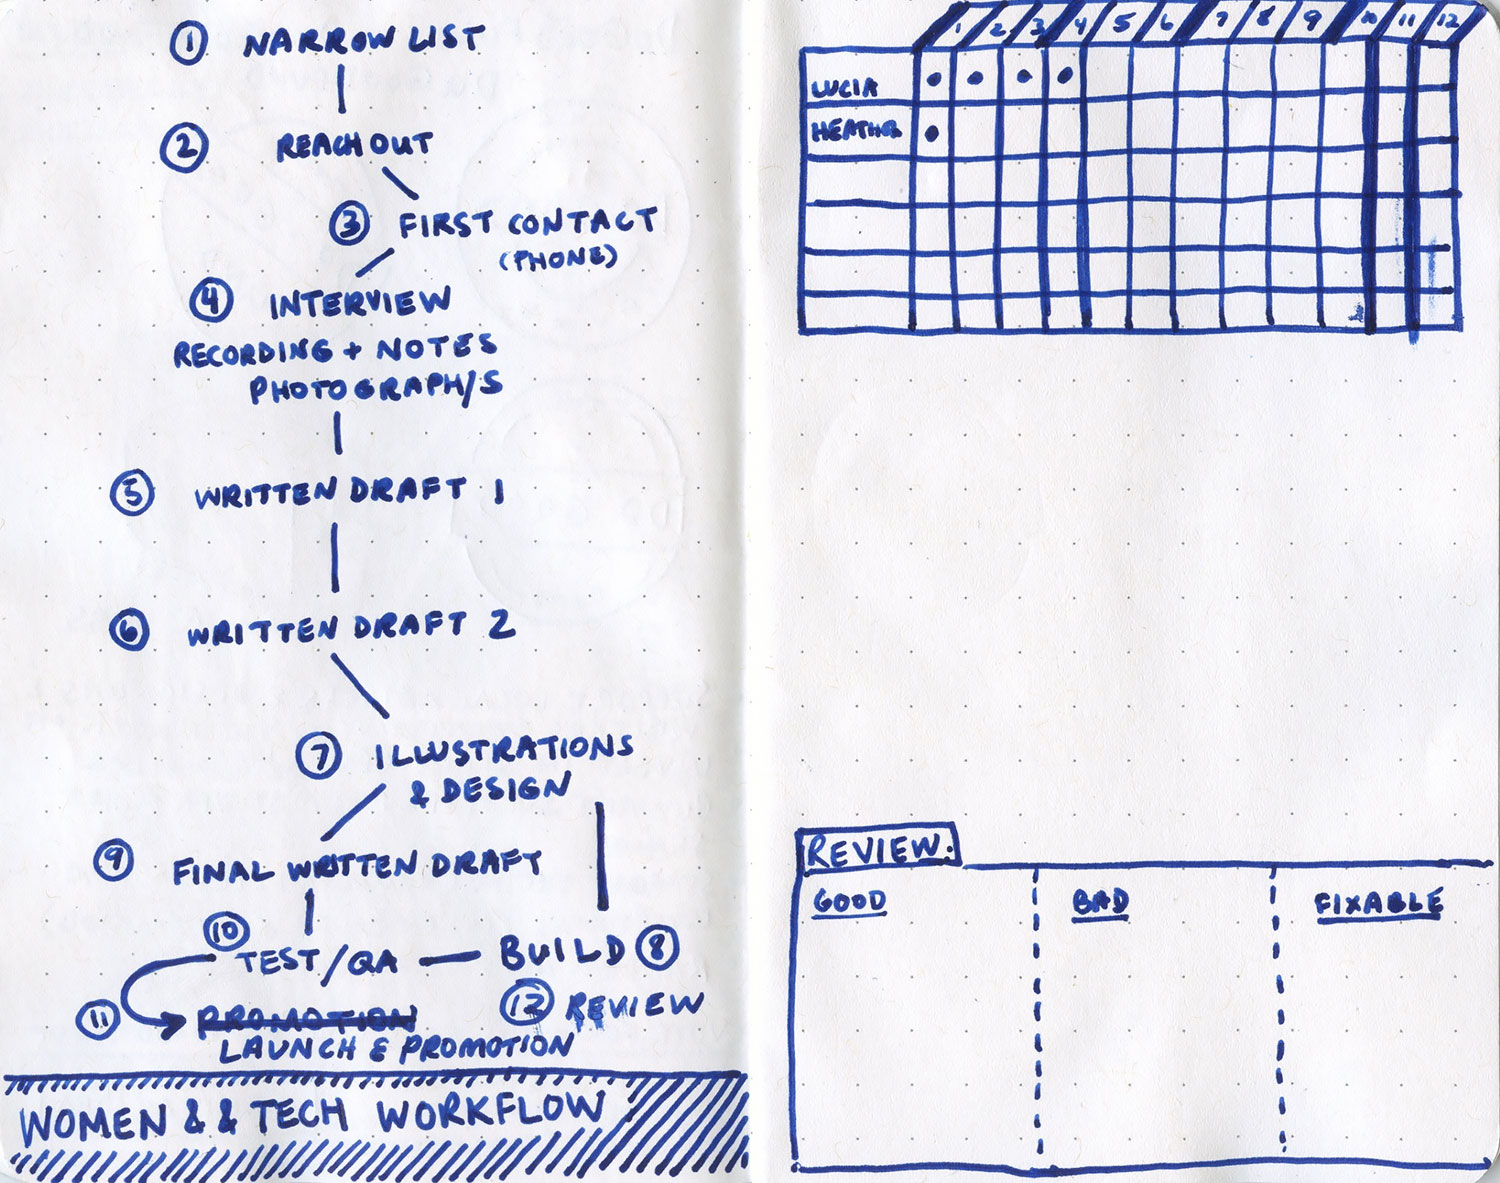 ① NARROW LIST
② REACH OUT
③ FIRST CONTACT
(PHONE)
④ INTERVIEW
RECORDING + NOTES
PHOTOGRAPH/S
⑤ WRITTEN DRAFT 1
⑥ WRITTEN DRAFT 2
⑦ ILLUSTRATIONS
& DESIGN
⑨ FINAL WRITTEN DRAFT
⑩ TEST/QA
BUILD ⑧
⑪ PROMOTION
LAUNCH & PROMOTION
⑫ REVIEW
WOMEN & & TECH WORKFLOW
1 2 3 4 5 6 7 8 9 10 11 12
LUCIA
HEATHER
REVIEW.
GOOD BAD FIXABLE